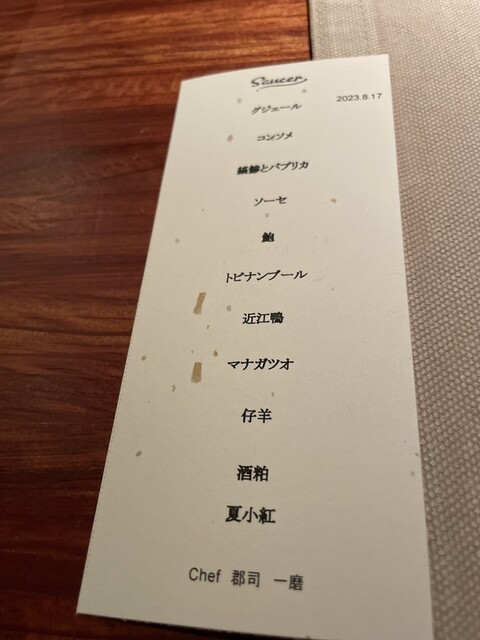 Saucer
2023.8.17
グジェール
コンソメ
縞鯵とパプリカ
ソーセ
鮑
トピナンブール
近江鴨
マナガツオ
仔羊
酒粕
夏小紅
Chef 郡司 一磨